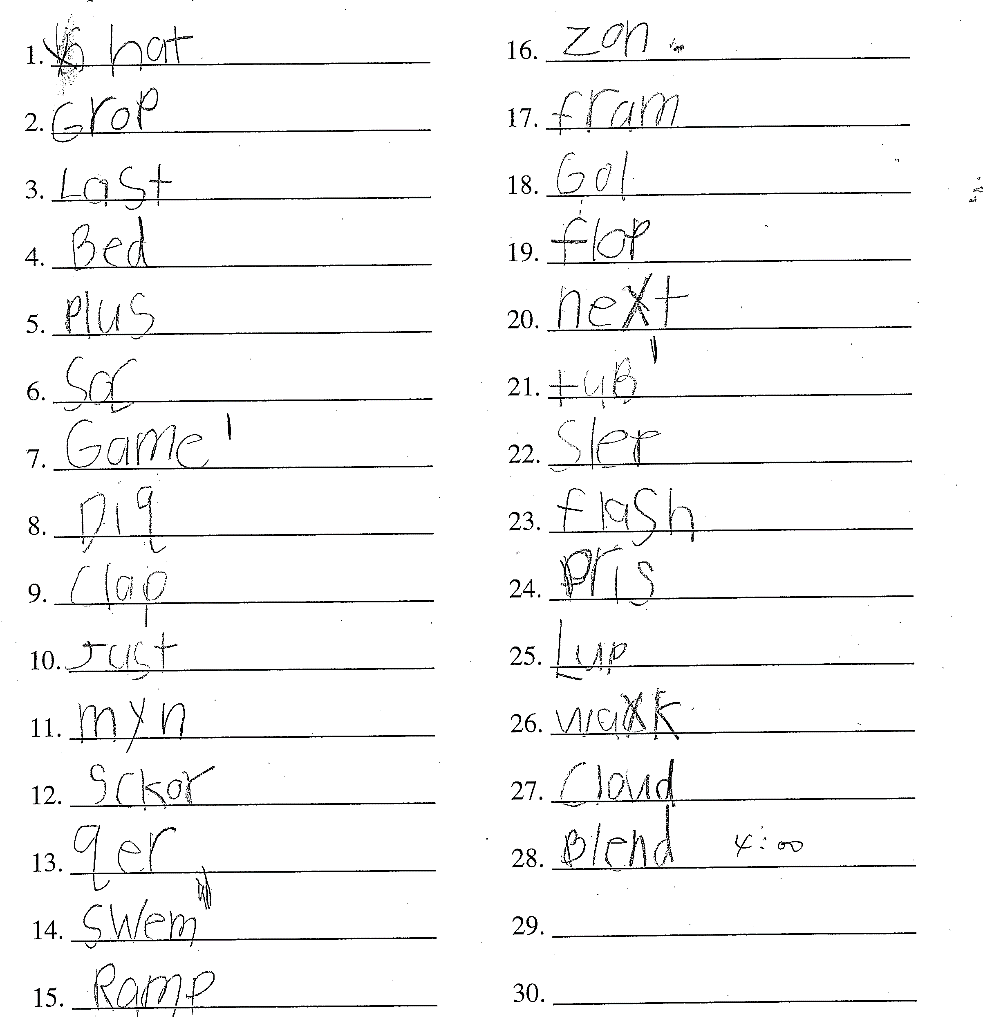 1. hat
2. Grop
3. Last
4. Bed
5. Plus
6. Soc
7. Game
8. Dig
9. Clap
10. Just
11. myn
12. Sckor
13. ger
14. Swem
15. Ramp
16. zon
17. fram
18. Gol
19. flop
20. next
21. tuB
22. Slep
23. flash
24. pris
25. Lup
26. waxk
27. Cloud
28. Blend 4:00
29.
30.